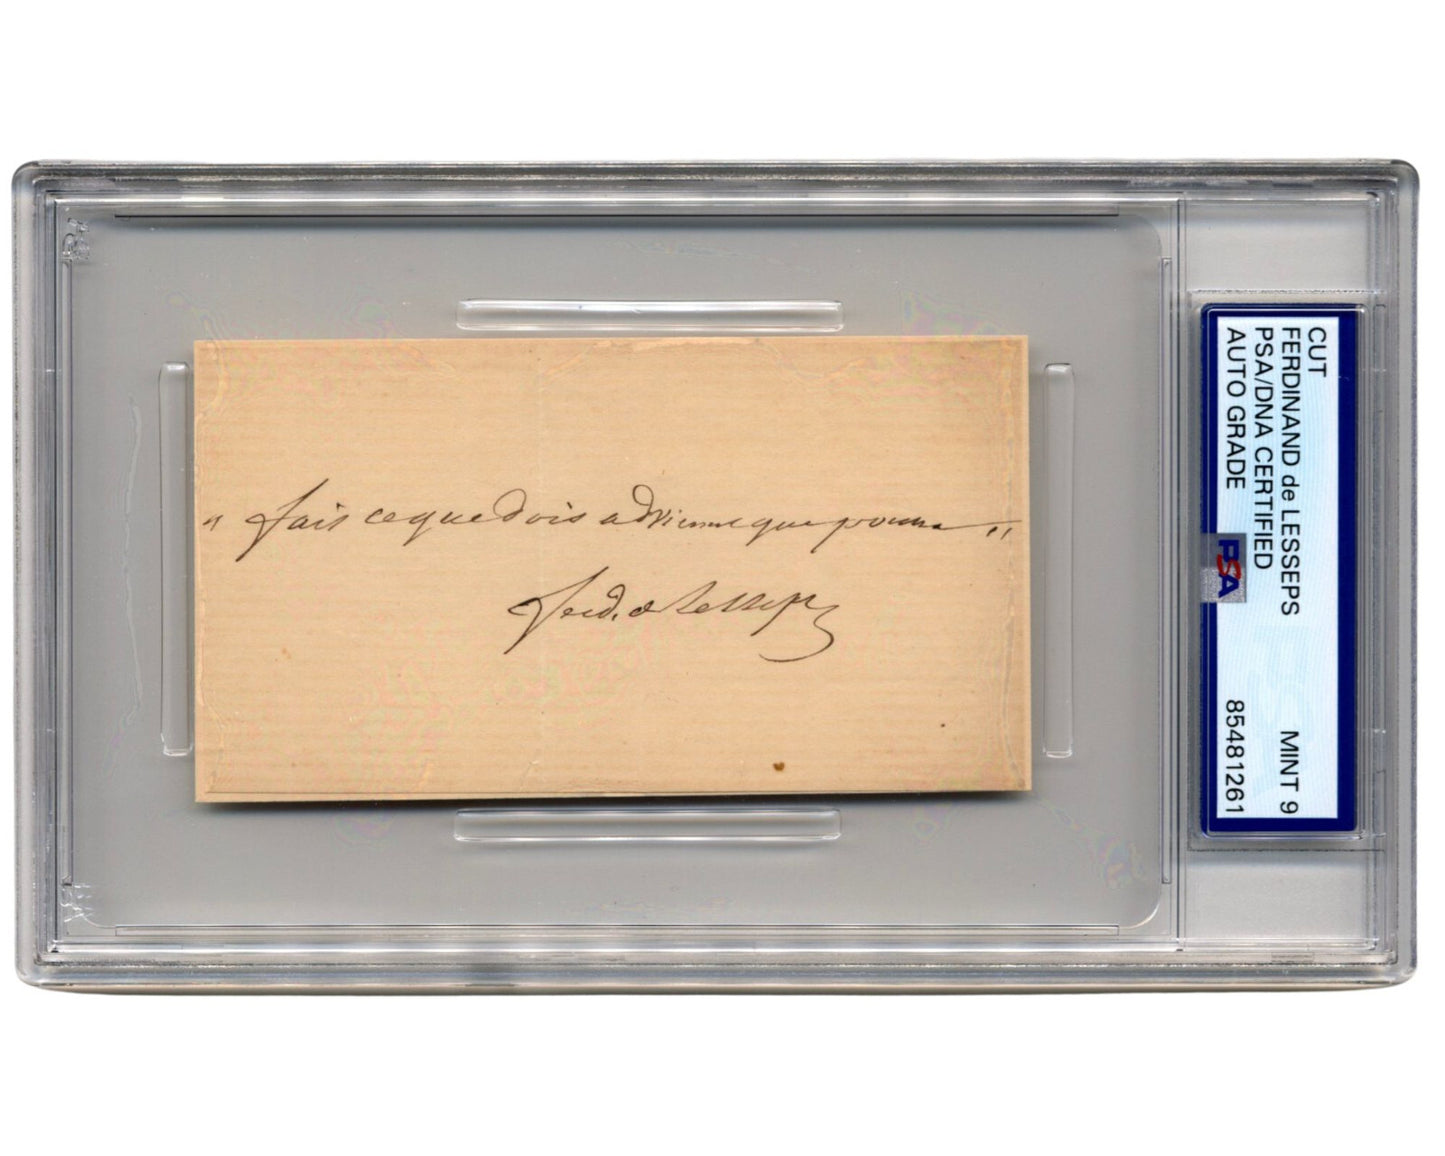 " fais ce que dois advienne que pourra "
Ferd. de Lesseps
CUT
FERDINAND de LESSEPS MINT 9
PSA/DNA CERTIFIED
AUTO GRADE 85481261
PSA